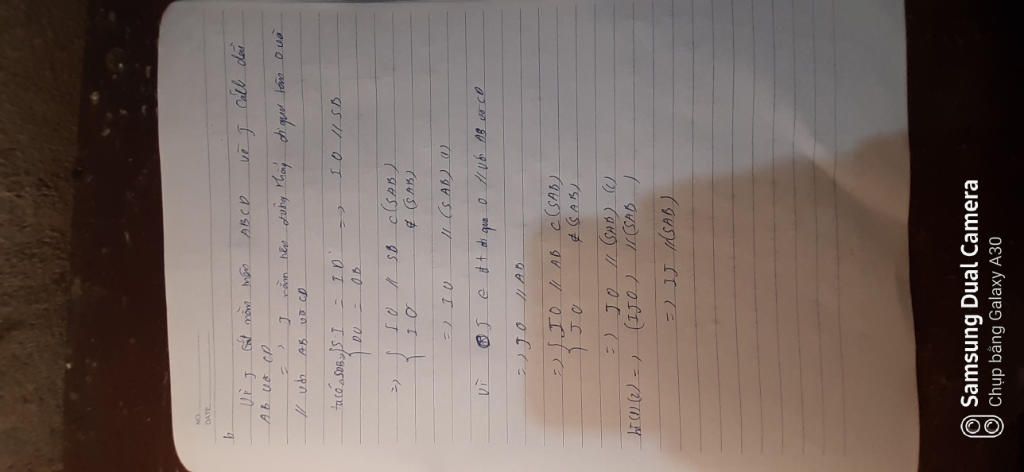 NO.
DATE.
b
Vì J nằm trên ABCD và J cách đều
AB và CD
=> J nằm trên đường thẳng đi qua tâm O và
// với AB và CD
ta có ΔSDB { SI = ID => IO // SB
DO = OB
=> { IO // SB ⊂ (SAB)
IO ⊄ (SAB)
=> IO // (SAB) (1)
Vì J ∈ đt đi qua O // với AB và CD
=> JO // AB
=> { JO // AB ⊂ (SAB)
JO ⊄ (SAB)
=> JO // (SAB) (2)
từ (1) (2) => (IJO) // (SAB)
=> IJ // (SAB)
Samsung Dual Camera
Chụp bằng Galaxy A30